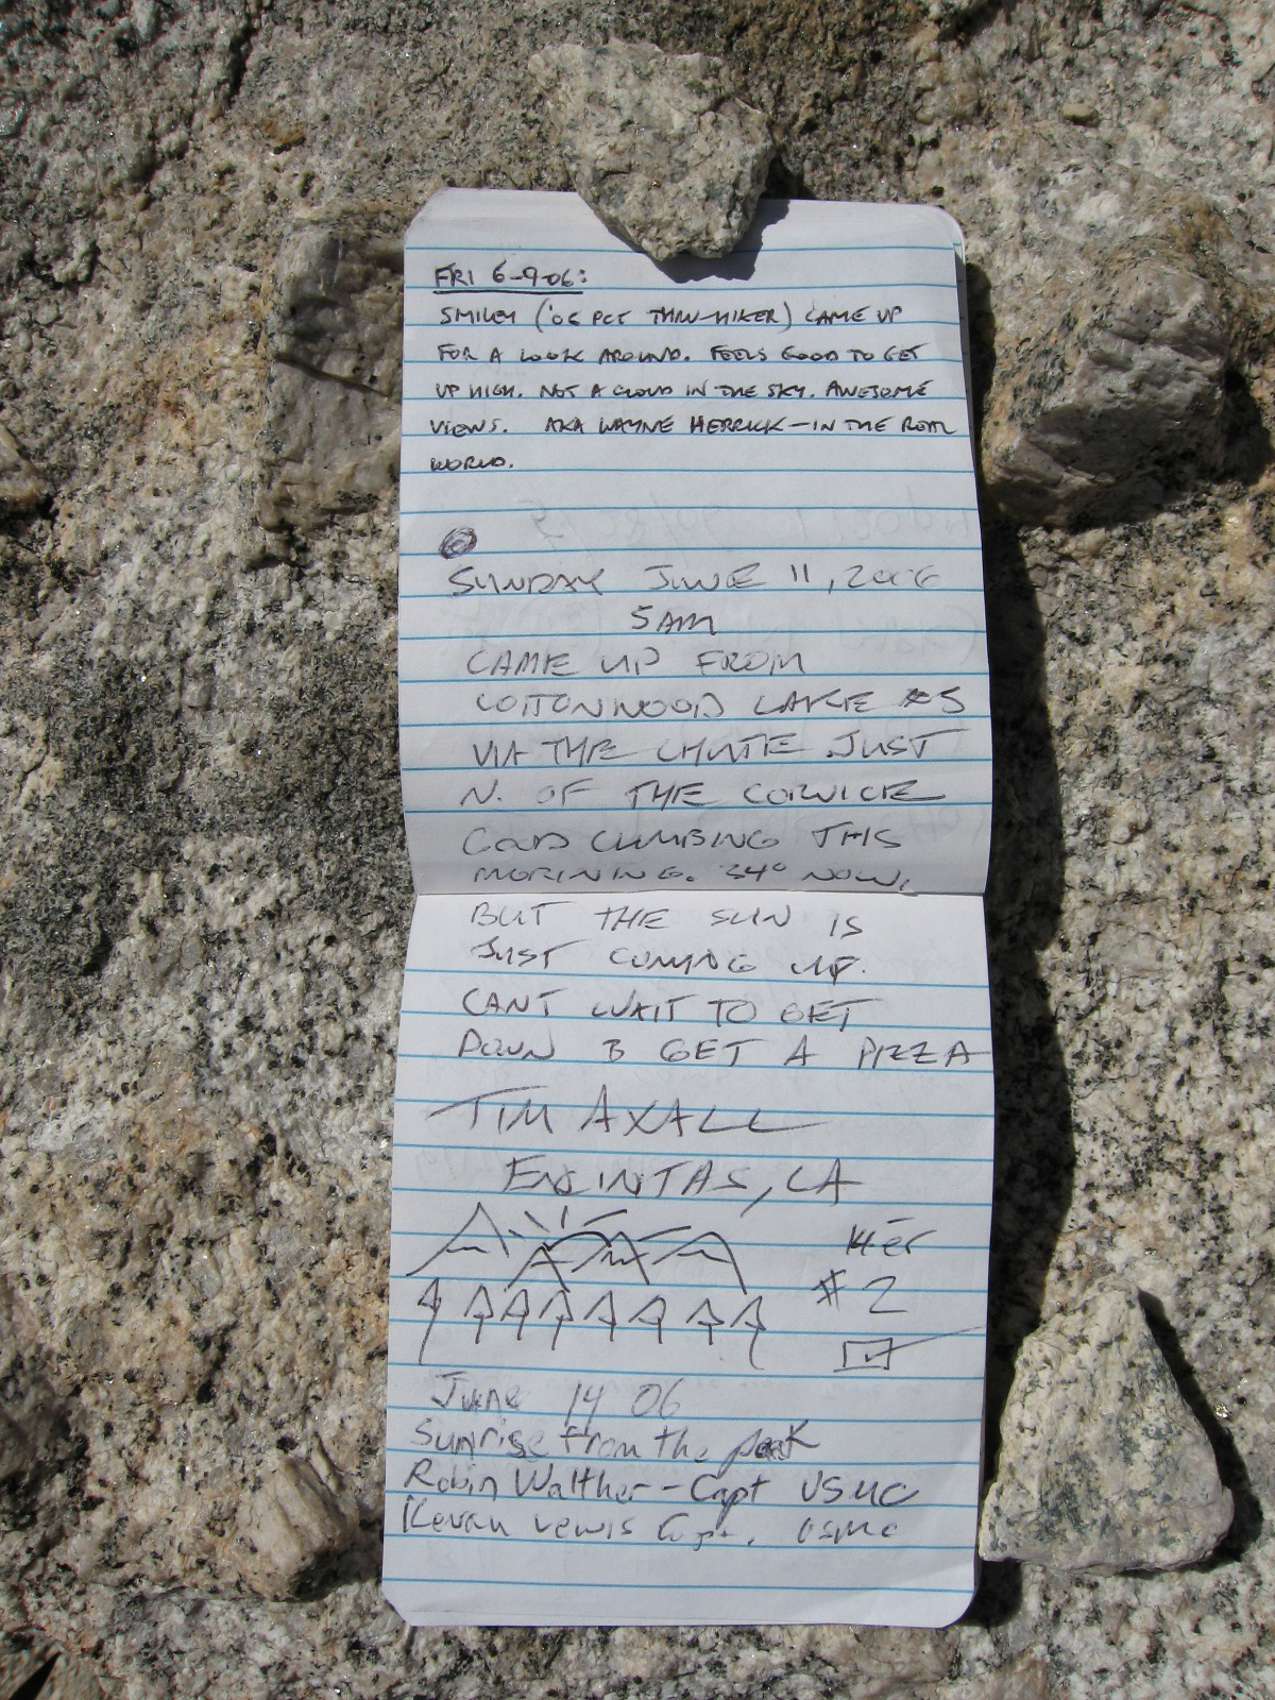 FRI 6-9-06:
SMILEY ('06 PCT THRU-HIKER) CAME UP
FOR A LOOK AROUND. FEELS GOOD TO GET
UP HIGH. NOT A CLOUD IN THE SKY. AWESOME
VIEWS. AKA WAYNE HERRICK—IN THE REAL
WORLD.
SUNDAY JUNE 11, 2006
5AM
CAME UP FROM
COTTONWOOD LAKE #5
VIA THE CHUTE JUST
N. OF THE CORNICE
GOOD CLIMBING THIS
MORINING. 34° NOW,
BUT THE SUN IS
JUST COMING UP.
CANT WAIT TO GET
DOWN & GET A PIZZA
TIM AXALL
ENCINITAS, CA
14er
#2
June 14 06
Sunrise from the peak
Robin Walther - Capt USMC
Kevan Lewis Capt. USMC